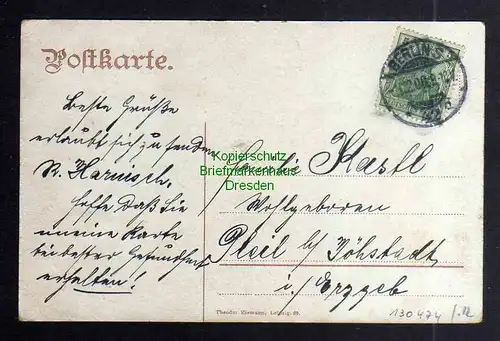 Postkarte.
BERLIN S.
Beste Grüße
erlaubt sich zu senden
R. Harnisch.
Hoffe daß Sie
meine Karte
bei bester Gesundheit
erhalten!
Kopierschutz
Briefmarkenhaus
Dresden
Familie Kastl
Wohlgeboren
Pleil b/ Jöhstadt
i/ Erzgeb
Theodor Eismann, Leipzig.
130474